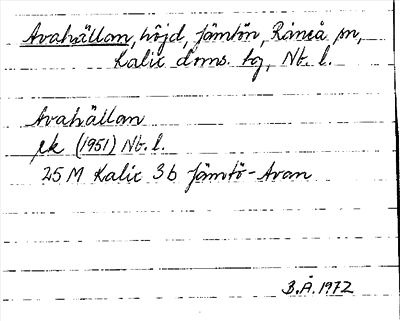 Avahällan, höjd, Jämtön, Råneå sn,
Kalix doms. tg, Nb. l.
Avahällan
ek (1951) Nb. l.
25 M Kalix 3b Jämtö-Avan
B.Å. 1972